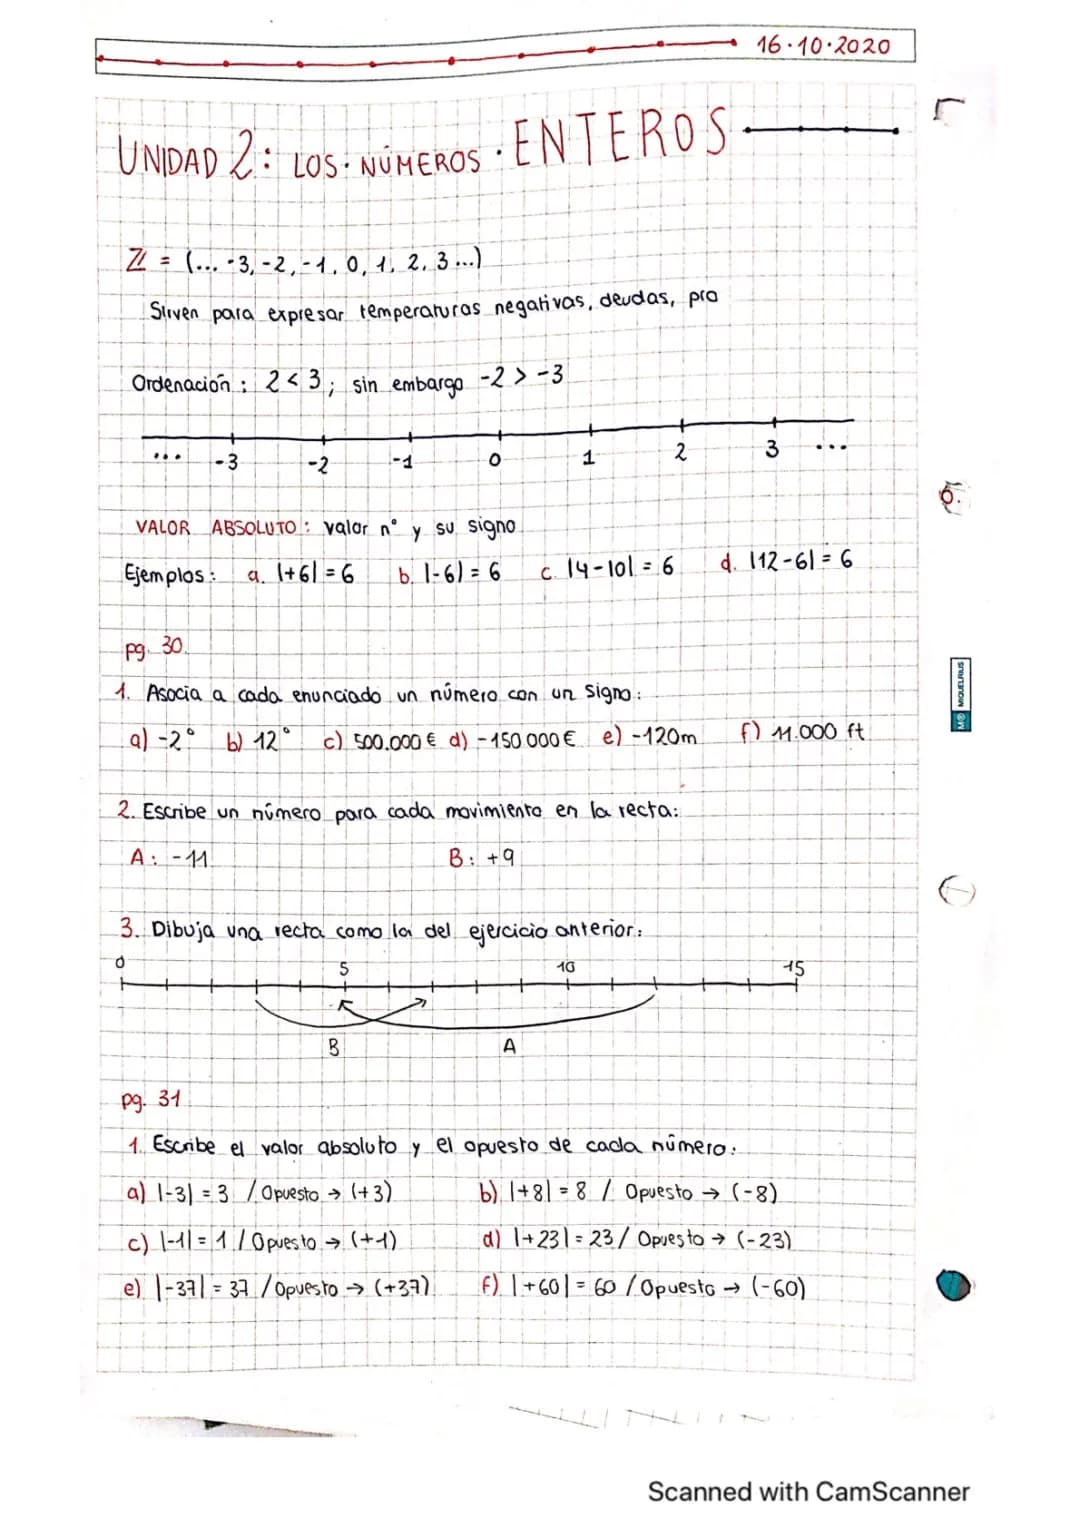 16·10·2020
UNIDAD 2: LOS · NÚMEROS · ENTEROS
Z = (... -3, -2, -1, 0, 1, 2, 3 ...)
Sirven para expresar temperaturas negativas, deudas, pro
Ordenación : 2 < 3 ; sin embargo -2 > -3
... -3 -2 -1 0 1 2 3 ...
VALOR ABSOLUTO : valor nº y su signo
Ejemplos : a. |+6| = 6 b. |-6| = 6 c. |4-10| = 6 d. |12-6| = 6
pg. 30.
1. Asocia a cada enunciado un número con un signo :
a) -2° b) 12° c) 500.000 € d) -150.000 € e) -120m f) 11.000 ft
2. Escribe un número para cada movimiento en la recta:
A : -11 B : +9
3. Dibuja una recta como la del ejercicio anterior :
0 5 10 15
B A
pg. 31
1. Escribe el valor absoluto y el opuesto de cada número :
a) |-3| = 3 / Opuesto → (+3) b) |+8| = 8 / Opuesto → (-8)
c) |-1| = 1 / Opuesto → (+1) d) |+23| = 23 / Opuesto → (-23)
e) |-37| = 37 / Opuesto → (+37) f) |+60| = 60 / Opuesto → (-60)
MIQUELRIUS
Scanned with CamScanner